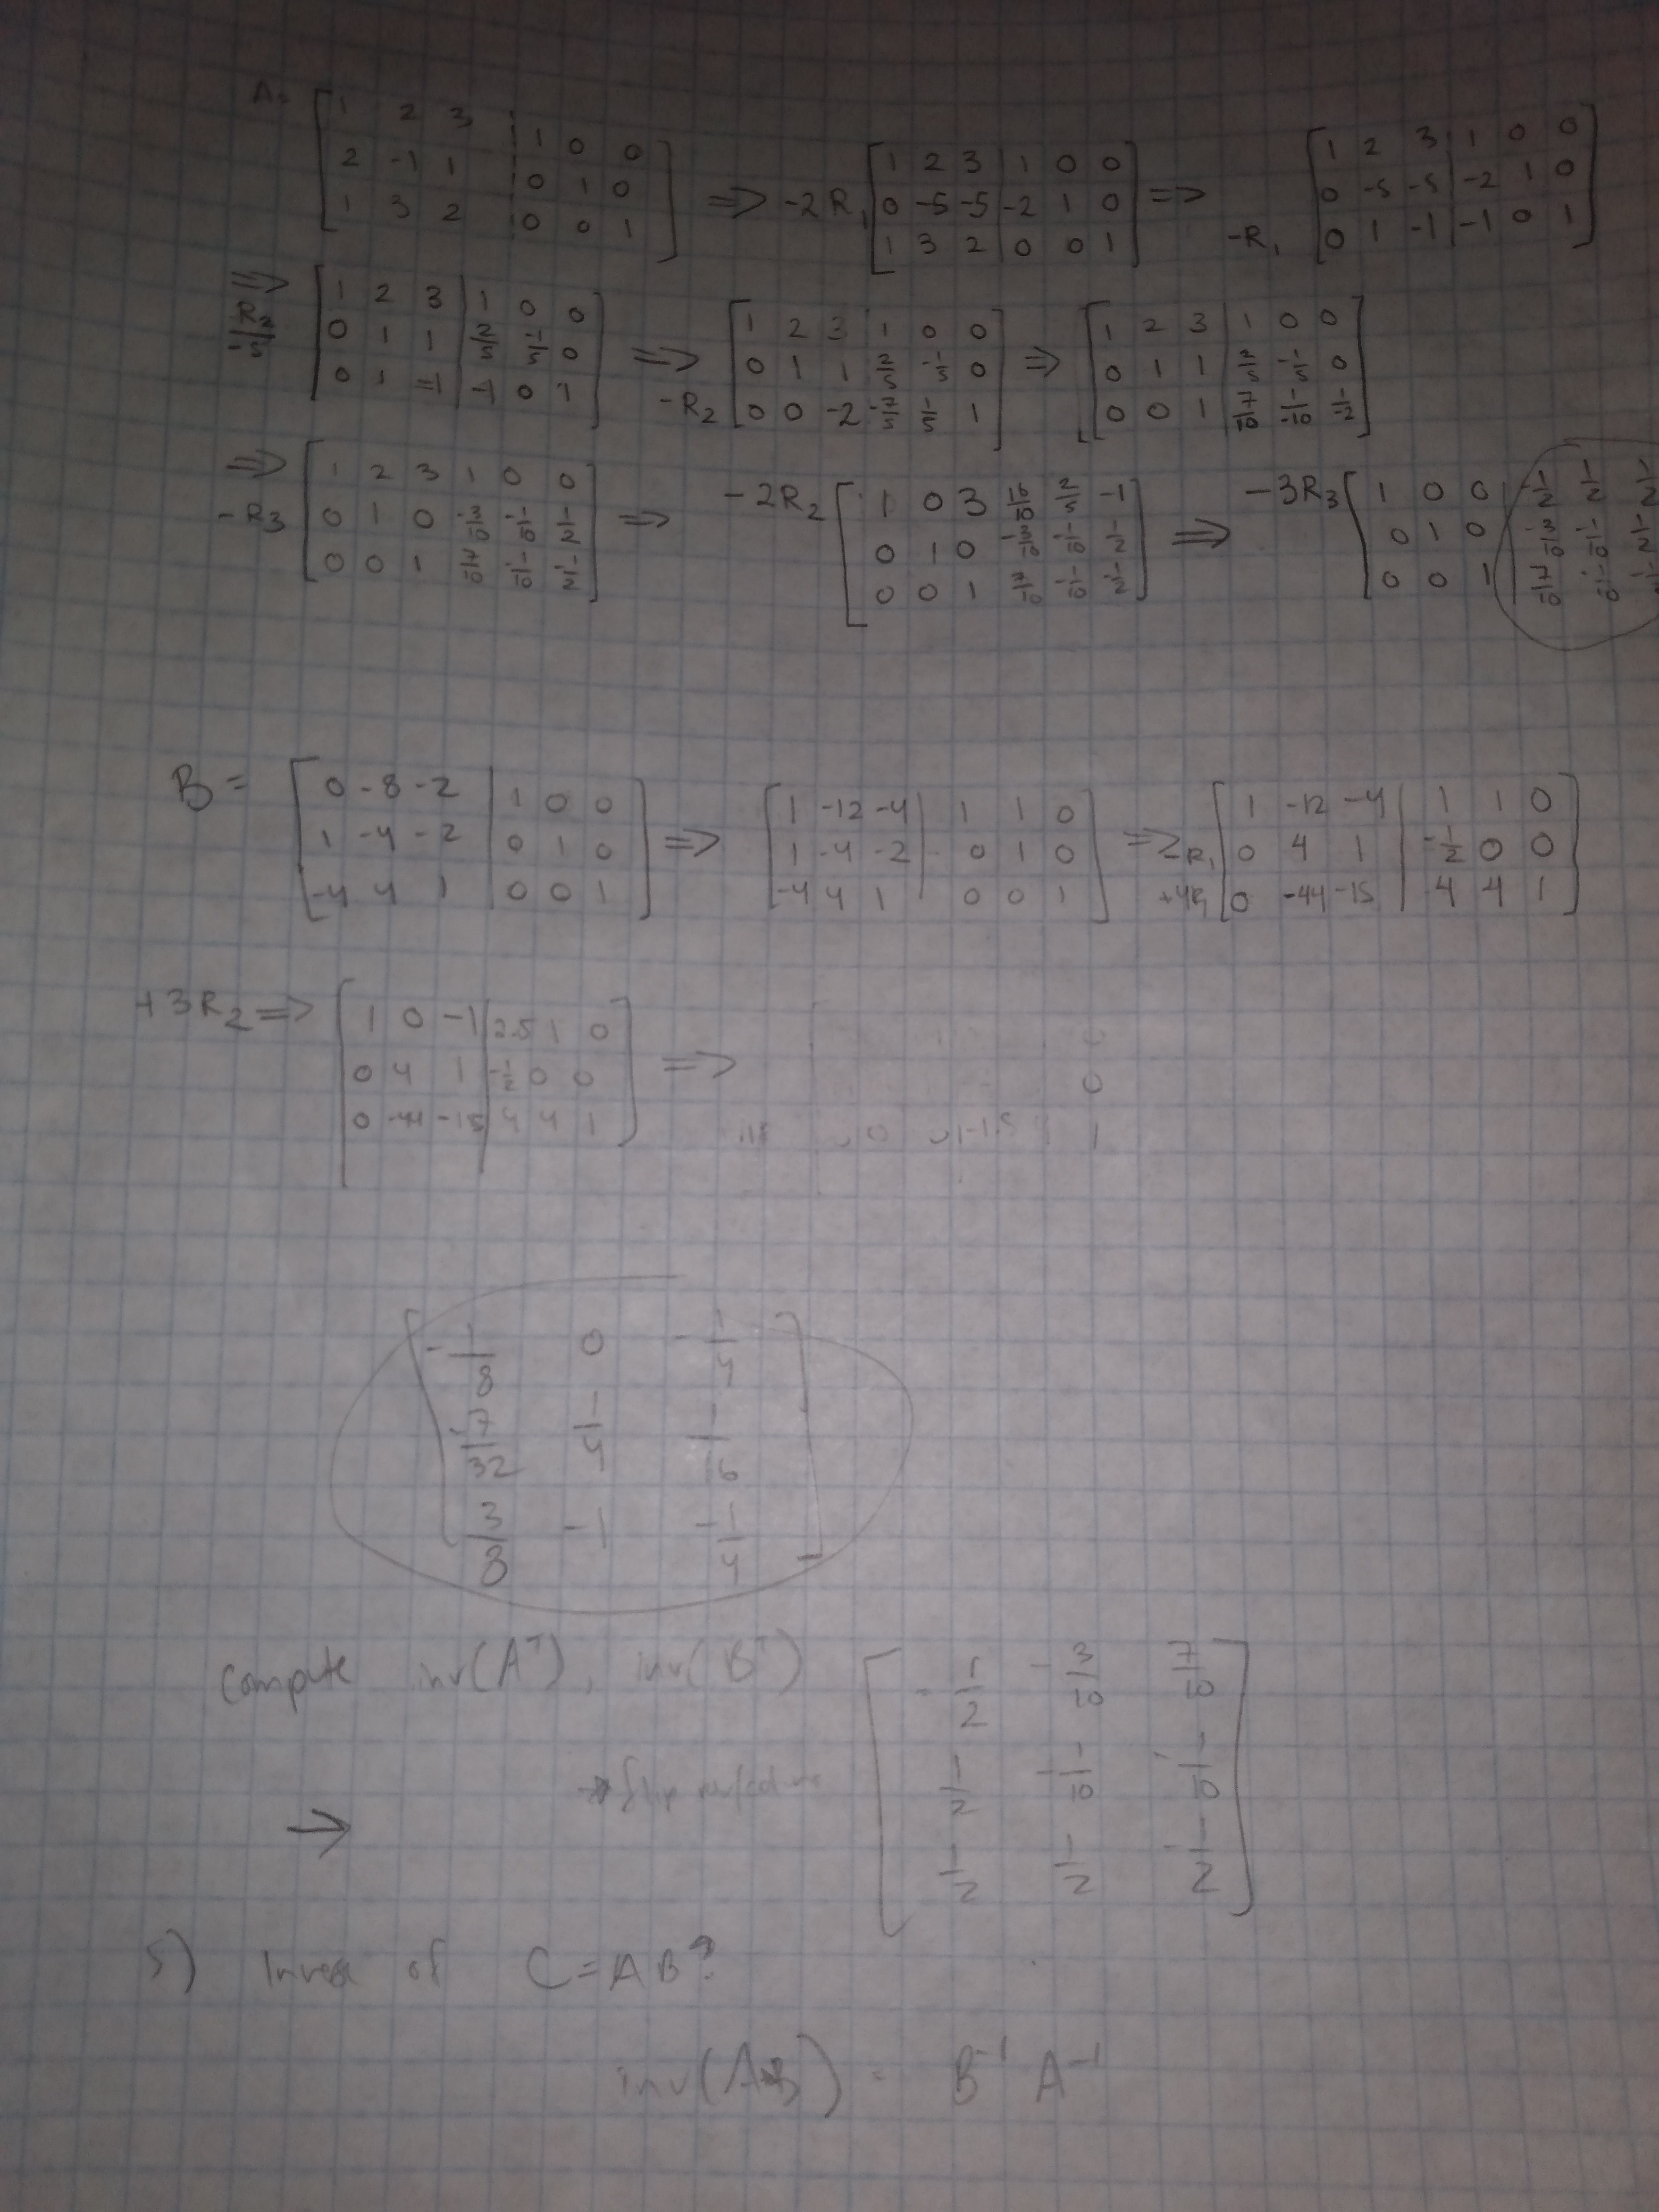 A= [ 1 2 3 | 1 0 0 ; 2 -1 1 | 0 1 0 ; 1 3 2 | 0 0 1 ] => -2R1 [ 1 2 3 | 1 0 0 ; 0 -5 -5 | -2 1 0 ; 1 3 2 | 0 0 1 ] => -R1 [ 1 2 3 | 1 0 0 ; 0 -5 -5 | -2 1 0 ; 0 1 -1 | -1 0 1 ]
=> R2/-5 [ 1 2 3 | 1 0 0 ; 0 1 1 | 2/5 -1/5 0 ; 0 1 -1 | -1 0 1 ] => -R2 [ 1 2 3 | 1 0 0 ; 0 1 1 | 2/5 -1/5 0 ; 0 0 -2 | -7/5 1/5 1 ] => [ 1 2 3 | 1 0 0 ; 0 1 1 | 2/5 -1/5 0 ; 0 0 1 | 7/10 1/-10 1/-2 ]
=> -R3 [ 1 2 3 1 0 0 ; 0 1 0 -3/10 -1/10 1/2 ; 0 0 1 7/10 -1/10 -1/2 ] => -2R2 [ 1 0 3 16/10 2/5 -1 ; 0 1 0 -3/10 -1/10 1/2 ; 0 0 1 7/10 -1/10 -1/2 ] => -3R3 [ 1 0 0 -1/2 1/2 1/2 ; 0 1 0 -3/10 -1/10 1/2 ; 0 0 1 7/10 -1/10 -1/2
B= [ 0 -8 -2 | 1 0 0 ; 1 -4 -2 | 0 1 0 ; -4 4 1 | 0 0 1 ] => [ 1 -12 -4 | 1 1 0 ; 1 -4 -2 | 0 1 0 ; -4 4 1 | 0 0 1 ] => -R1 +4R1 [ 1 -12 -4 | 1 1 0 ; 0 4 1 | -1/2 0 0 ; 0 -44 -15 | 4 4 1 ]
+3R2 => [ 1 0 -1 | 2.5 1 0 ; 0 4 1 | -1/2 0 0 ; 0 -44 -15 | 4 4 1 ] =>
[ -1/8 0 -1/4 ; -7/32 1/4 1/16 ; 3/8 -1 -1/4 ]
Compute inv(A^T), inv(B^T) [ -1/2 -3/10 7/10 ; 1/2 -1/10 -1/10 ; 1/2 1/2 -1/2 ]
→ flip
5) Inverse of C=AB?
inv(AB) = B^-1 A^-1